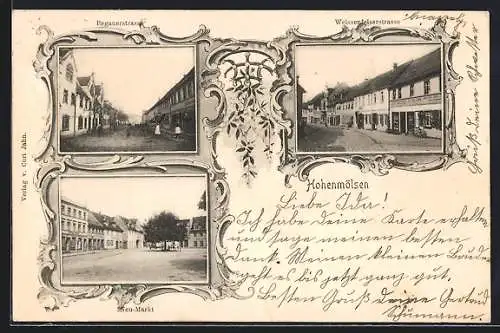 Pegauerstrasse
Weissenfelserstrasse
Verlag v. Curt Jahn.
Hohenmölsen
Neu-Markt
Liebe Ida!
Ich habe deine Karte erhalten
und sage meinen besten
Dank. Meinen kleinen Bruder
geht es bis jetzt ganz gut,
Besten Gruß deine Gertrud
Schumann.
Gruß deine